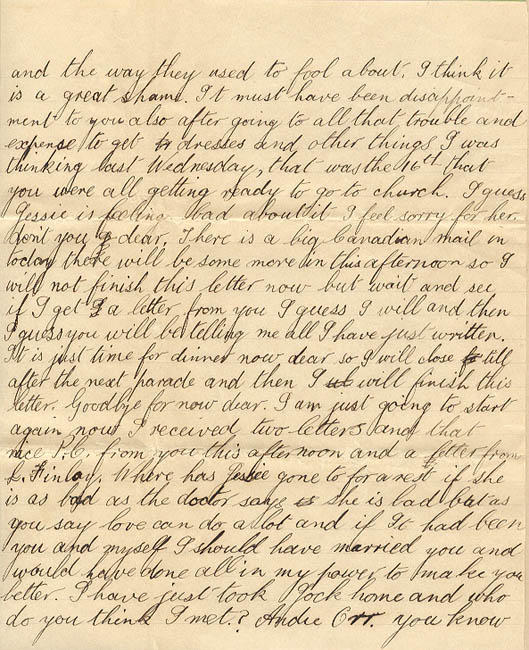 and the way they used to fool about. I think it
is a great shame. It must have been disappoint-
ment to you also after going to all that trouble and
expense to get dresses and other things I was
thinking last Wednesday, that was the 16th that
you were all getting ready to go to church. I guess
Jessie is feeling bad about it I feel sorry for her.
dont you dear. There is a big Canadian mail in
today there will be some more in this afternoon so I
will not finish this letter now but wait and see
if I get a letter from you I guess I will and then
I guess you will be telling me all I have just written.
It is just time for dinner now dear so I will close till
after the next parade and then I will finish this
letter. Goodbye for now dear. I am just going to start
again now I received two letters and that
nice P.C. from you this afternoon and a letter from
L. Finlay. Where has Jessie gone to for a rest if she
is as bad as the doctor says she is bad but as
you say love can do a lot and if it had been
you and myself I should have married you and
would have done all in my power to make you
better. I have just took Jock home and who
do you think I met.? Andie Orr. you know